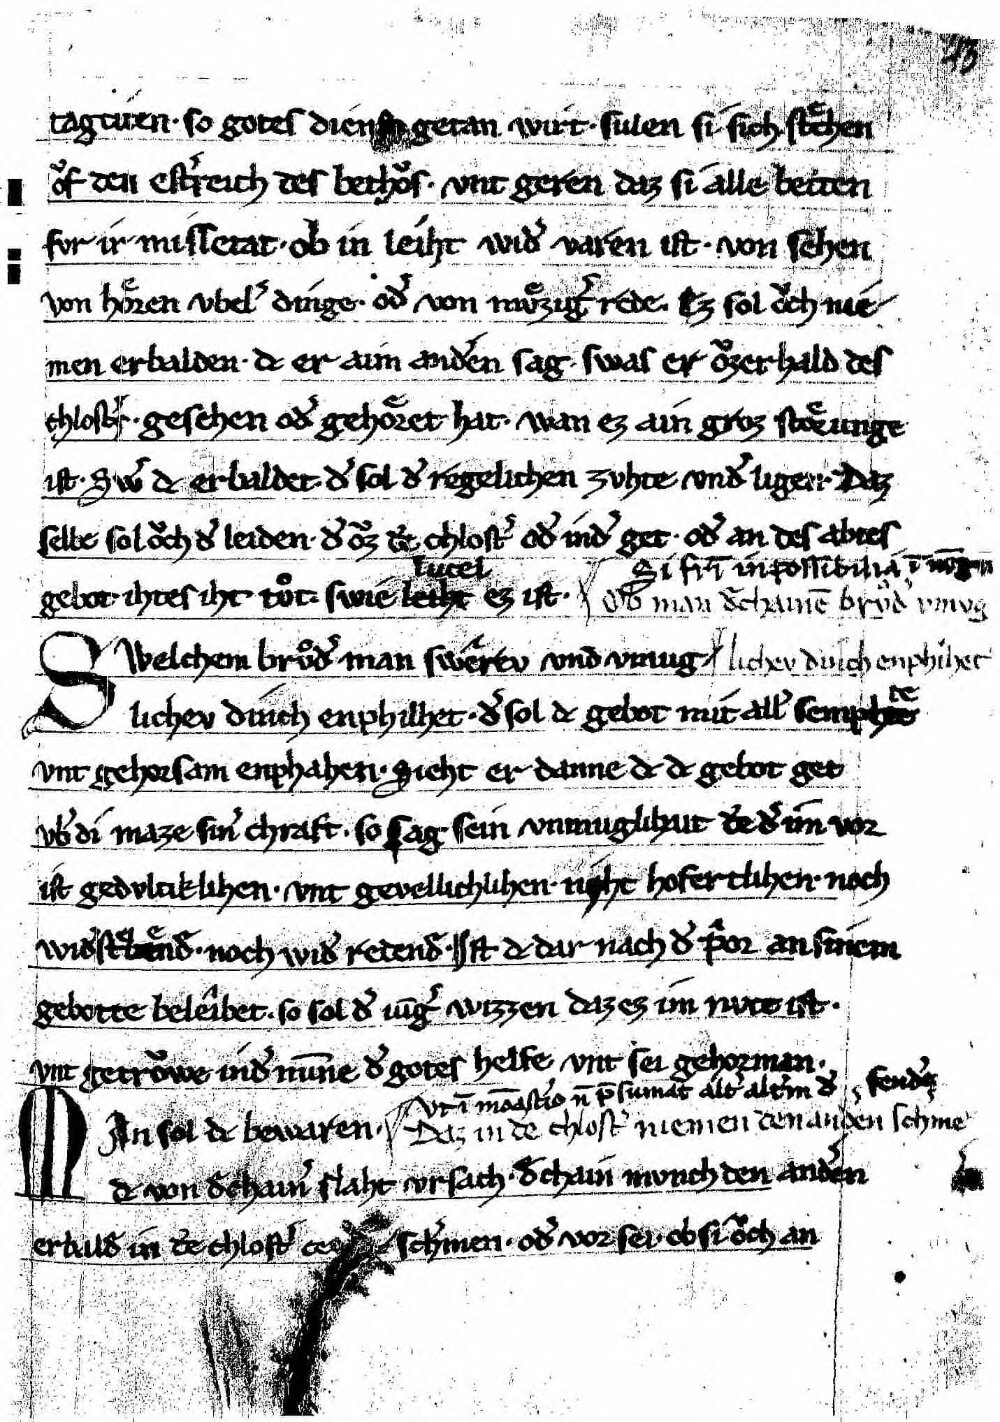 43
tagcüen · so gotes dienst getan wirt · sulen si sich strͤchen
oͮf den estreich des bethoͮs · vnt geren daz si alle beiten
for ir missetat · ob in leiht widˢ varen ist · von sehen
von hoͤren vbelˢ dinge · odˢ von muͤzigˢ rede · Ez sol oͮch nie
men erbalden · dc er aim andˢen sag · swas er oͮzerhald des
chlostˢs · gesehen odˢ gehoͤret hat · wan ez ain groz stoͤrunge
ist · Swˢ dc erbaldet · dˢ sol dˢ regelichen zvhte vndˢ ligen · Daz
selbe sol oͮch dˢ leiden · dˢ oͮz dē chlostˢ odˢ indˢ get · odˢ an des abtes
gebot ihtes iht toͮt · swie leiht lucel ez ist ·
Si fr̄i inpossibilia
Ob man dˢchainē bruͦdˢ vnmvg
lichev dinch enphilhet
Swelchem bruͦdˢ man swerev vnd vnmug
lichev dinch enphilhet · dˢ sol dc gebot mit allˢ semphte
vnt gehorsam enphahen · Sieht er danne dc dc gebot get
vbˢ di maze sinˢ chraft · so sag sein vnmuglihait dē dˢ im vor
ist gedvltiklihen · vnt gevellichlihen · niht hofertlihen · noch
widˢstrebendˢ · noch widˢ redendˢ · Ist dc dar nach dˢ p̄or an sinem
gebotte beleibet · so sol dˢ iūgˢ wizzen daz ez im nvtc ist ·
vnt getroͮwe indˢ mīne dˢ gotes helfe vnt sei gehorman ·
Vt ī mōastˢio n̄ p̄sumat̄ altˢ altˢm dˢ fendˢe
Man sol dc bewaren ·
Daz in dē chlostˢ niemen den anden schirme
dc von dˢchainˢ slaht vrsach · dˢchain mvnich den andˢen
erbaldˢ in dē chlostˢ schˢmen · odˢ vor sei · ob si oͮch an